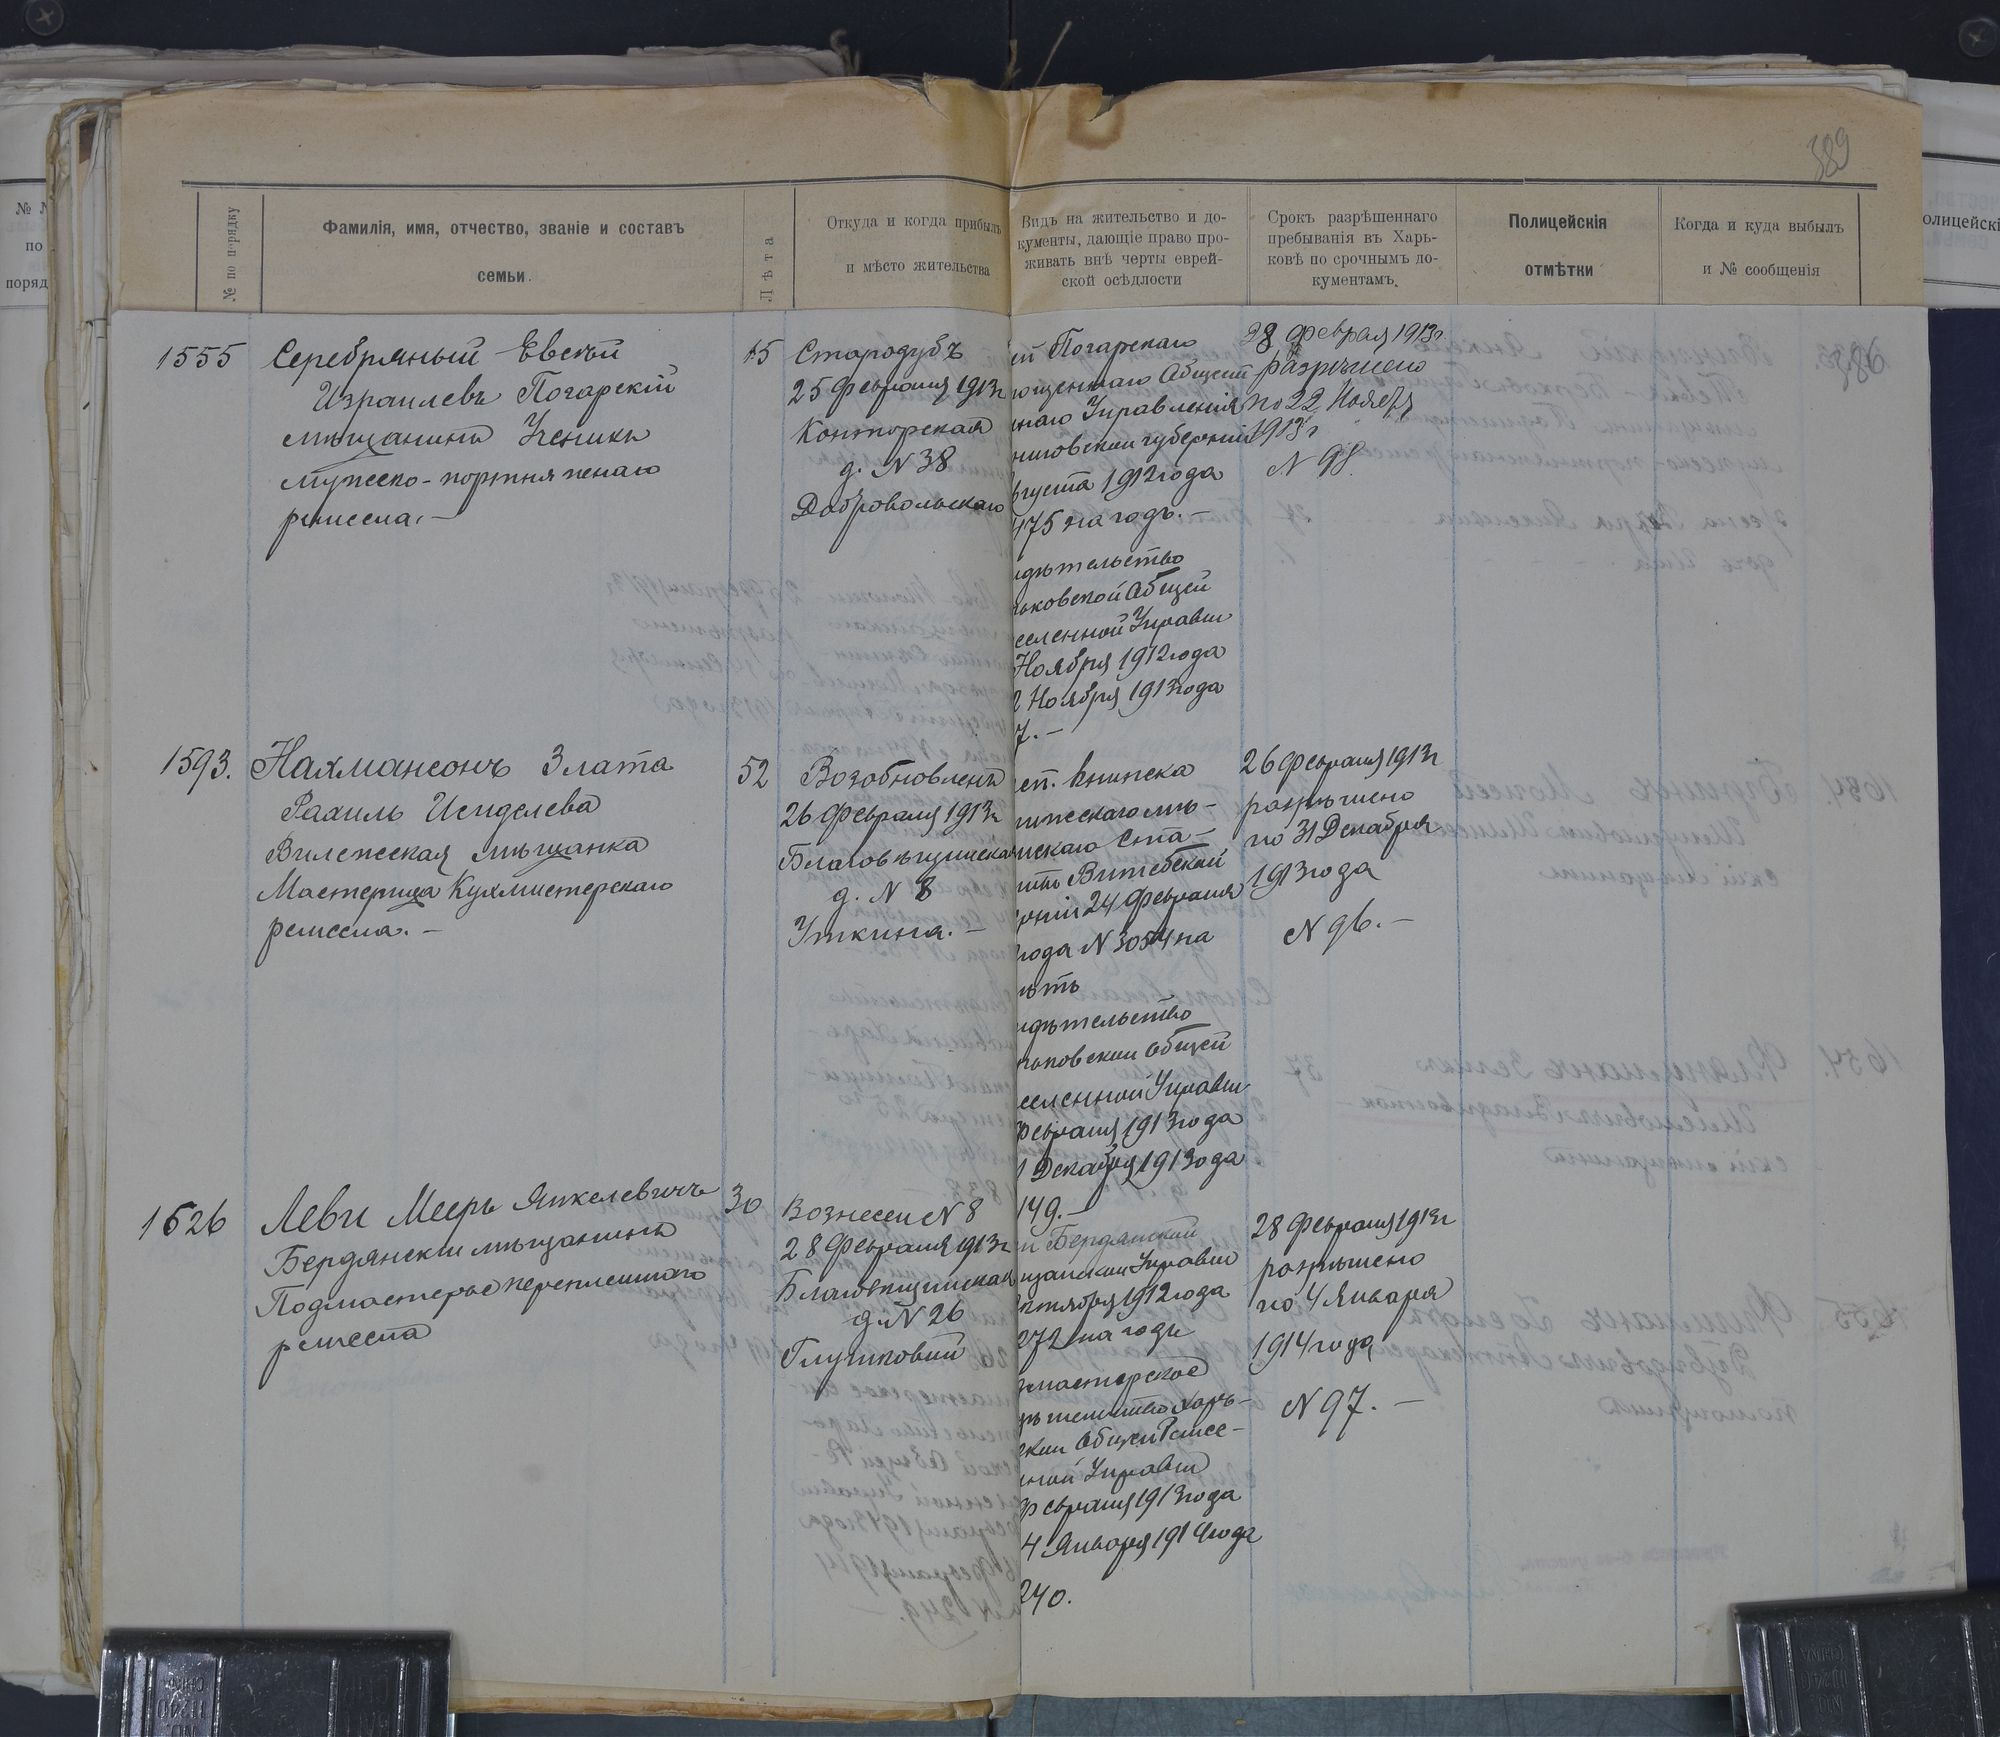 389
№ по порядку
Фамилія, имя, отчество, званіе и составъ
семьи.
Лѣта
Откуда и когда прибылъ
и мѣсто жительства
Видъ на жительство и до-
кументы, дающіе право про-
живать внѣ черты еврей-
ской осѣдлости
Срокъ разрѣшеннаго
пребыванія въ Харь-
ковѣ по срочнымъ до-
кументамъ.
Полицейскія
отмѣтки
Когда и куда выбылъ
и № сообщенія
1555
Серебряный Евсѣй
Израилевъ Погарскій
мѣщанинъ Ученикъ
мужско-портняжнаго
ремесла.—
15
Стародубъ
25 Февраля 1913 г
Конторская
д. N 38
Добровольскаго
ей Погарскаго
ощеннаго Общест
наго Управленія
ниговской губерніи
вгуста 1912 года
475 на годъ.—
идѣтельство
ьковской Общей
сленной Управы
Ноября 1912 года
2 Ноября 1913 года
7.—
28 Февраля 1913 г.
разрѣшено
по 22 Ноября
1913 г
N 98.
1593.
Нахмансонъ Злата
Рахиль
Виленская мѣщанка
Мастерица Кухмистерскаго
ремесла.—
52
Возобновленъ
26 Февраля 1913 г
Благовѣщенская
д. N 8
Уткина.—
еп. книжка
нискаго мѣ-
нскаго Ста-
Витебской
рніи 24 Февраля
года N 3054 на
ять
идѣтельство
ьковской Общей
сленной Управы
Февраля 1913 года
1 Декабря 1913 ода
149.—
26 Февраля 1913 г
разрѣшено
по 31 Декабря
1913 года
N 96.—
1626
Леви Мееръ Янкелевичъ
Бердянскій мѣщанинъ
Подмастерье переплетнаго
ремесла
30
Вознесен N 8
28 Февраля 1913 г
Благовѣщенская
д. N 26
Глушковой
й Бердянской
щанской Управы
ктября 1912 года
272 на годъ
мастерское
ѣтельство Харь-
ской Общей Ремес-
нной Управы
Февраля 1913 года
4 Января 1914 года
240.
28 Февраля 1913 г
разрѣшено
по 4 Января
1914 года
N 97.—